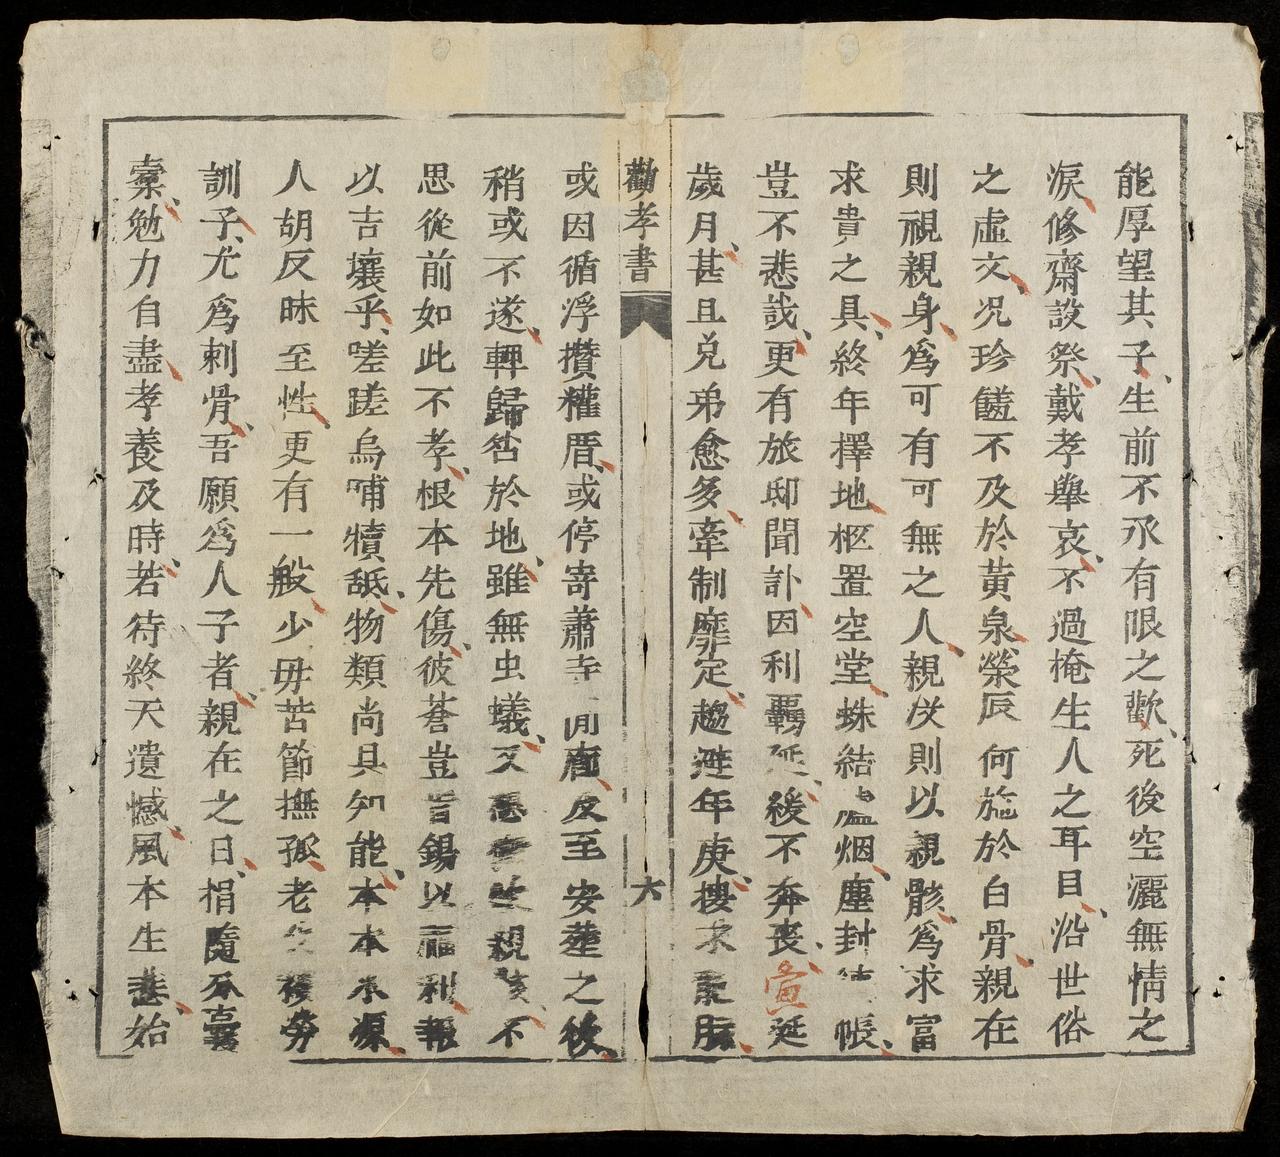 能厚望其子生前不承有限之歡死後空灑無情之
淚修齋設祭戴孝舉哀不過掩生人之耳目沿世俗
之虛文况珍饈不及於黃泉榮辰何施於白骨親在
則視親身為可有可無之人親歿則以親骸為求富
求貴之具終年擇地柩置空堂蛛結烟塵封帳
豈不悲哉更有旅邸聞訃因利羈延緩不奔喪延
歲月甚且兄弟愈多牽制靡定趨避年庚摟求
勸孝書
六
或因循浮攢權厝或停寄蕭寺反至安葬之後
稍或不遂輒歸咎於地雖無虫蟻又親不
思從前如此不孝根本先傷彼蒼豈肯錫以福利報
以吉壤乎嗟蹉烏哺犢舐物類尚具知能本本水源
人胡反昧至性更有一般少毋苦節撫孤老勞
訓子尤為刺骨吾願為人子者親在之日捐隨分
橐勉力自盡孝養及時若待終天遺憾風本生悲始